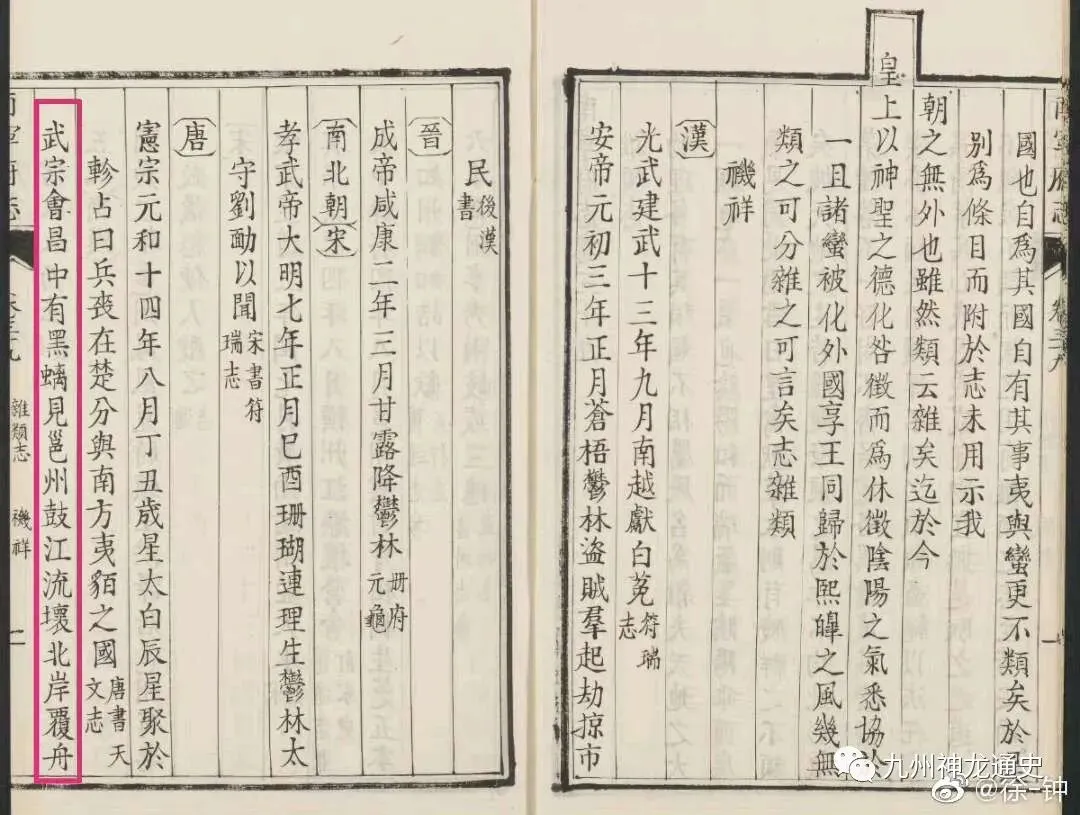 國也自爲其國自有其事夷與蠻更不類矣於
別爲條目而附於志未用示我
朝之無外也雖然類云雜矣迄於今
皇
上以神聖之德化咎徵而爲休徵陰陽之氣悉協於
一且諸蠻被化外國享王同歸於熙皥之風幾無
類之可分雜之可言矣志雜類
禨祥
漢
光武建武十三年九月南越獻白兎符瑞志
安帝元初三年正月蒼梧鬱林盜賊羣起劫掠市
民後漢書
晉
成帝咸康二年二月甘露降鬱林册府元龜
南北朝宋
孝武帝大明七年正月巳酉珊瑚連理生鬱林太
守劉勔以聞宋書符瑞志
唐
憲宗元和十四年八月丁丑歲星太白辰星聚於
軫占曰兵喪在楚分與南方夷貊之國唐書天文志
武宗會昌中有黑螭見邕州鼓江流壞北岸覆舟
雜類志
禨祥
二
九州神龙通史
@徐-钟